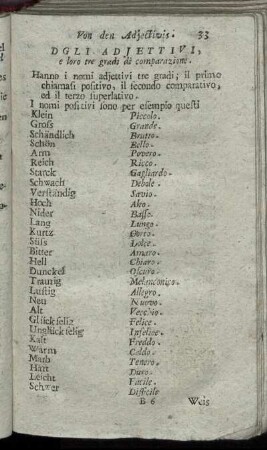 Von den Adjectivis. 33
DGLI ADJETTIVI,
e loro tre gradi di comparazione.
Hanno i nomi adjettivi tre gradi; il primo
chiamasi positivo, il secondo comparativo,
ed il terzo superlativo.
I nomi positivi sono per esempio questi
Klein Piccolo.
Gross Grande.
Schändlich Brutto.
Schön Bello.
Arm Povero.
Reich Ricco.
Starck Gagliardo.
Schwach Debole.
Verständig Savio.
Hoch Alto.
Nider Basso.
Lang Lungo.
Kurtz Corto.
Süss Dolce.
Bitter Amaro.
Hell Chiaro.
Dunckel Oscuro.
Traurig Melanconico.
Lustig Allegro.
Neu Nuovo.
Alt Vecchio.
Glückselig Felice.
Unglückselig Infelice.
Kalt Freddo.
Warm Caldo.
Tenero.
Hart Duro.
Leicht Facile.
Schwer Difficile
B 6 Weis